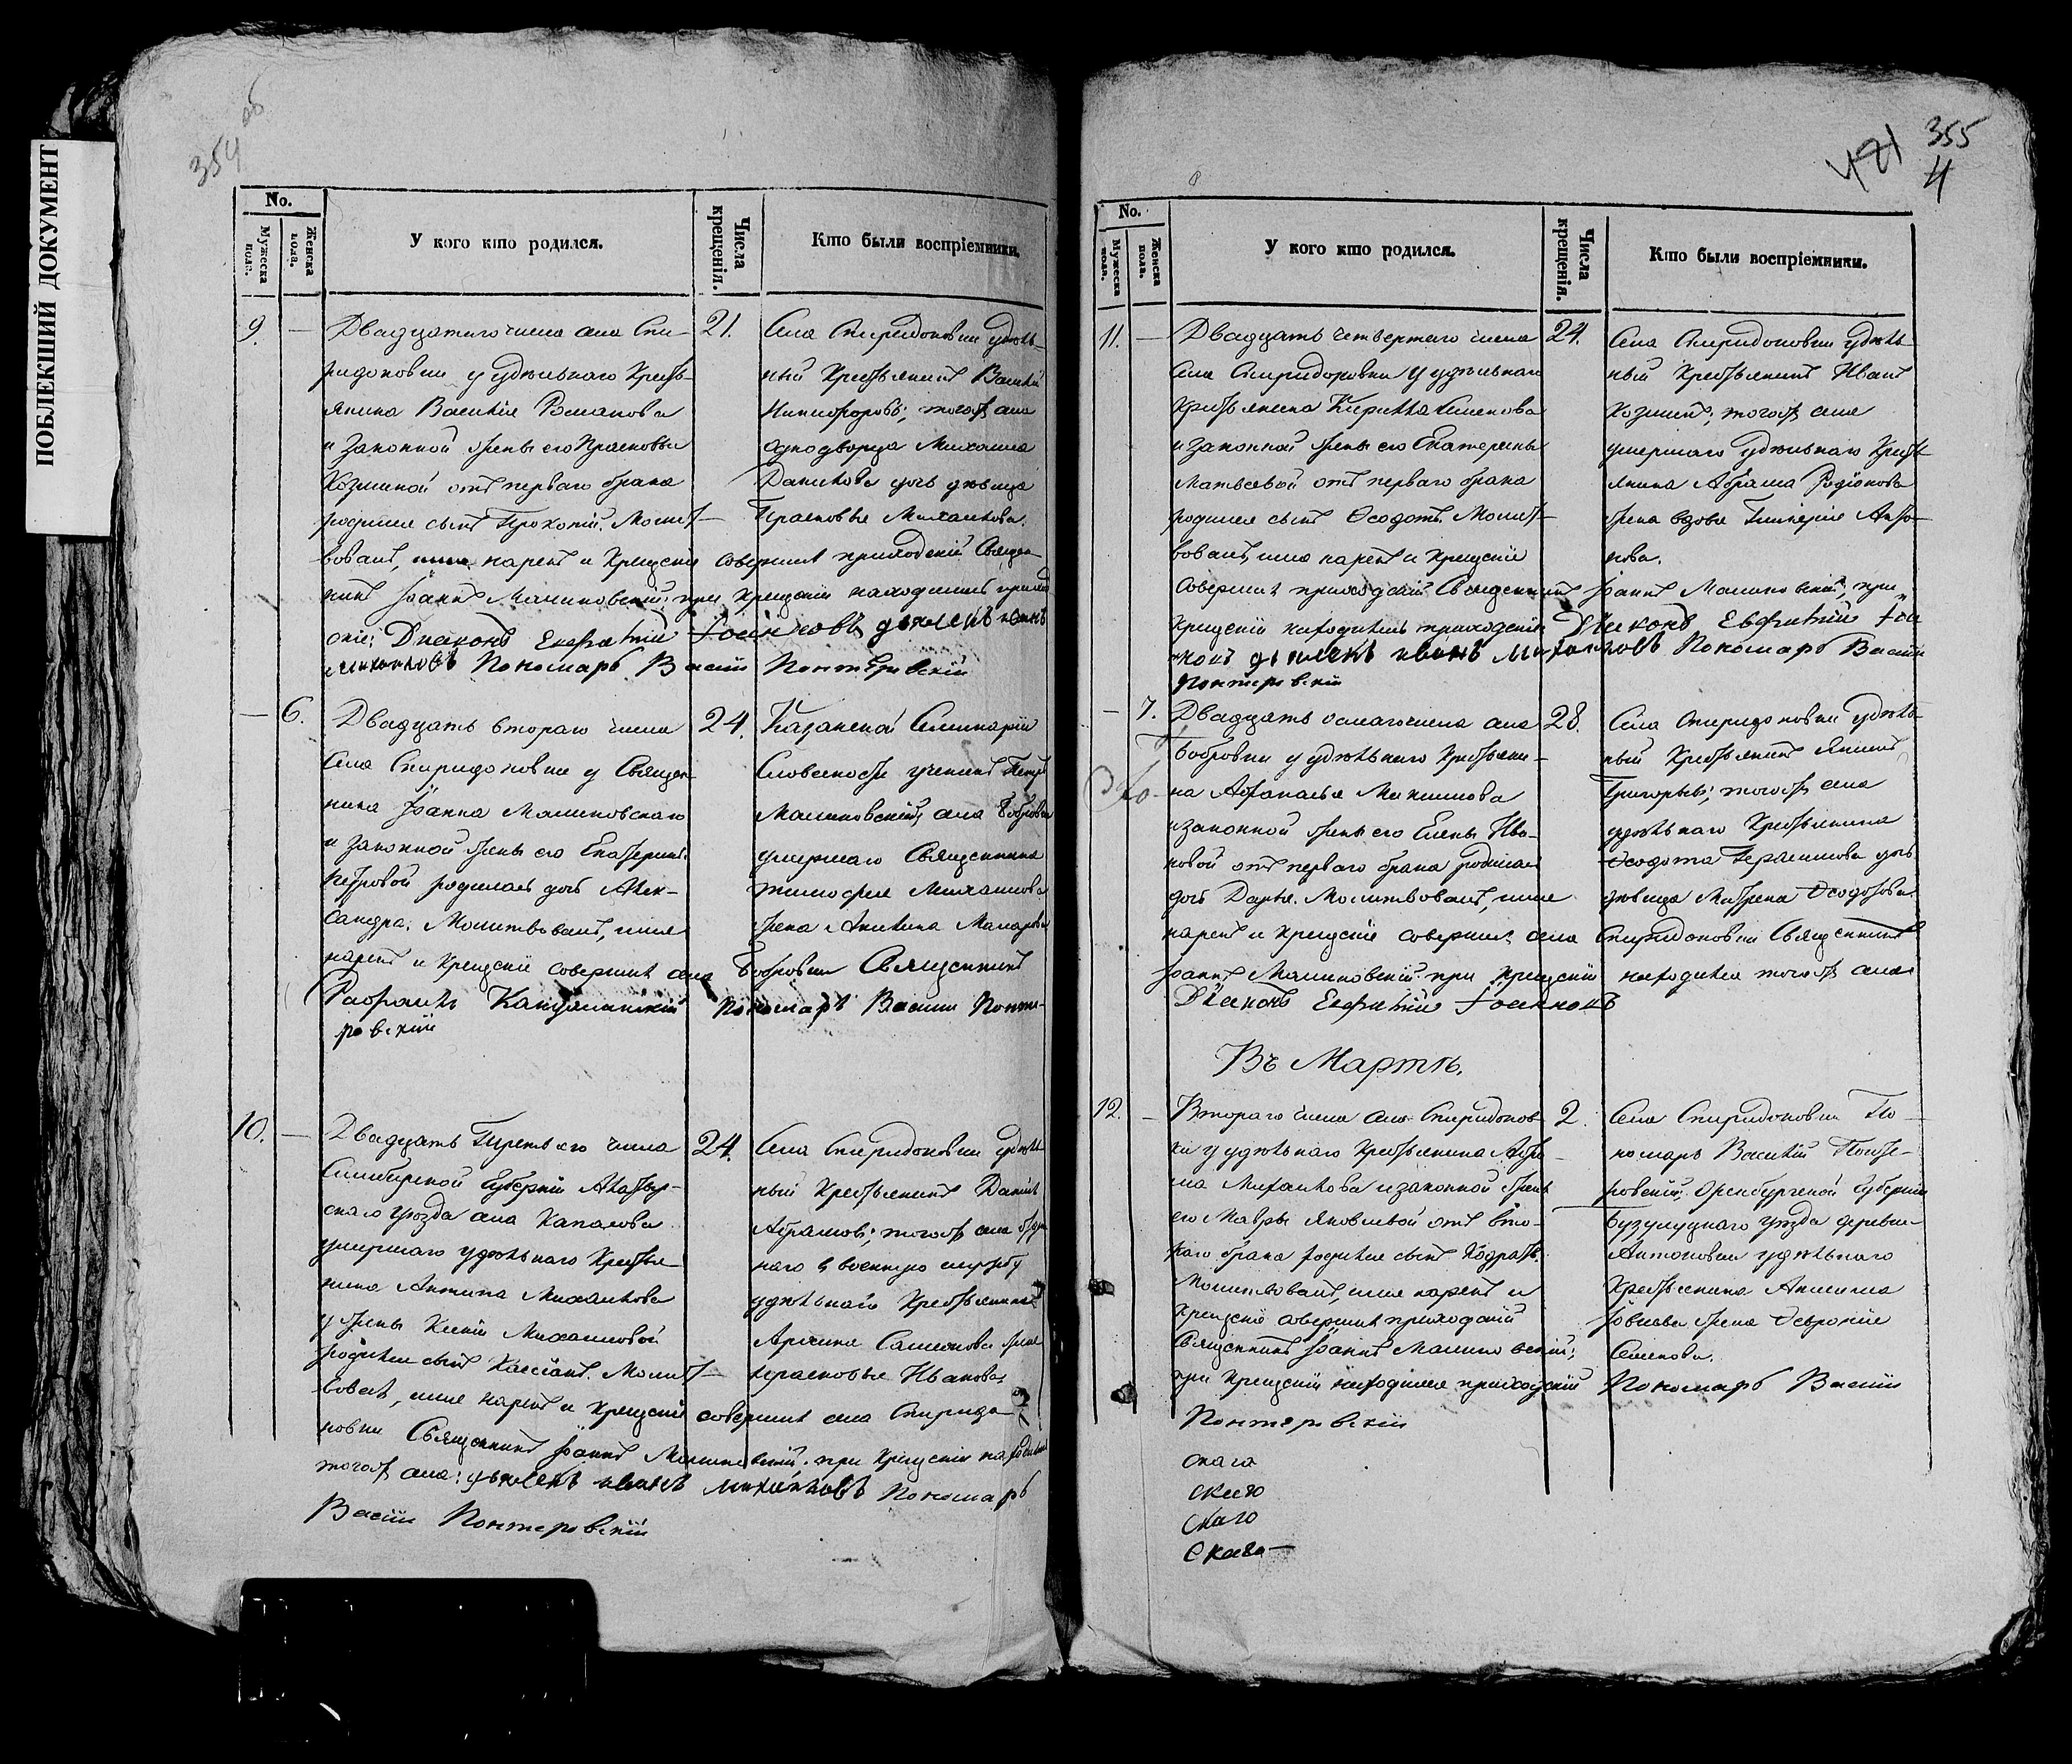 ПОБЛЕКШИЙ ДОКУМЕНТ
354 об
No.
Мужеска пола.
Женска пола.
У кого кто родился.
Числа крещенія.
Кто были воспріемники.
9. — Двадцатаго числа села Спи-
ридоновки у удѣльнаго кресть-
янина Василія Романова
и законной жены его Прасковьи
Козминой отъ перваго брака
родился сынъ Прокопій. Молит-
вовалъ, имя нарекъ и крещеніе совершилъ приходскій Священ-
никъ Іоаннъ Малиновскій; при крещеніи находились приход
скіе: Діаконъ Евфимій Іоанновъ дьячекъ иванъ
михайловъ Пономарь Васілій Понтеровскій
21.
Села Спиридоновки удѣль-
ный крестьянинъ Василій
Никифоровъ; тогожъ села
однодворца Михаила
Данилова дочь дѣвица
Прасковья Михайлова.
— 6. Двадцать втораго числа
Села Спиридоновки у Священ-
ника Іоанна Малиновскаго
и законной жены его Екатерины
Петровой родилась дочь Алек-
сандра. Молитвовалъ, имя
нарекъ и крещеніе совершилъ села Бобровки Священникъ
Пономарь Василій Понте-
ровскій
24.
Казанской Семинаріи
Словесности ученикъ Петръ
Малиновскій; села Бобровки
умершаго Священника
Михайлова
жена
10. — Двадцать Третьяго числа
Симбирской Губерніи Алатыр-
скаго уѣзда села
умершаго удѣльнаго крестья-
нина Антипа Михайлова
у жены Ксеніи Михайловой
родился сынъ Кассіанъ. Молит-
вовалъ, имя нарекъ и крещеніе совершилъ села Спиридо-
новки Священникъ Іоаннъ Малиновскій; при крещеніи находились
тогожъ села: дьячекъ иванъ михайловъ Пономарь
Васілій Понтеровскій
24.
Села Спиридоновки удѣль-
ный крестьянинъ Данилъ
Абрамовъ; тогожъ села
наго в военную службу
удѣльнаго крестьянина
жена
Прасковья Иванова
421 355
4
No.
Мужеска пола.
Женска пола.
У кого кто родился.
Числа крещенія.
Кто были воспріемники.
11. — Двадцать четвертаго числа
Села Спиридоновки у удѣльнаго
крестьянина Кирилла Семенова
и законной жены его Екатерины
Матвеевой отъ перваго брака
родился сынъ Ѳеодотъ. Молит-
вовалъ, имя нарекъ и крещеніе
совершилъ приходскій Священникъ Іоаннъ Малиновскій; при
крещеніи находились приходскіе Діаконъ Евфимій Іоан
новъ дьячекъ иванъ Михайловъ Пономарь Васілій
Понтеровскій
24.
Села Спиридоновки удѣль-
ный крестьянинъ Иванъ
Козминъ; тогожъ села
умершаго удѣльнаго кресть-
янина Абрама Родіонова
жена вдова Гликерія
— 7. Двадцать осмаго числа села
Бобровки у удѣльнаго крестьяни-
на Афанасья Максимова
и законной жены его Елены Ива-
новой отъ перваго брака родилась
дочь Дарья. Молитвовалъ, имя
нарекъ и крещеніе совершилъ села Спиридоновки Священникъ
Іоаннъ Малиновскій при крещеніи находился тогожъ села
Діаконъ Евфимій Іоанновъ
28.
Села Спиридоновки удѣль-
ный крестьянинъ
Григорьевъ; тогожъ села
удѣльнаго крестьянина
Ѳеодота Герасимова дочь
дѣвица Матрена Ѳеодотова.
Въ Мартѣ.
12. — Втораго числа села Спиридонов-
ки у удѣльнаго крестьянина Абра-
ма Михайлова и законной жены
его Мавры Яковлевой отъ вто-
раго брака родился сынъ Кодратъ.
Молитвовалъ, имя нарекъ и
крещеніе совершилъ приходскій
Священникъ Іоаннъ Малиновскій;
при крещеніи находился приходскій Пономарь Васілій
Понтеровскій
2.
Села Спиридоновки По-
номарь Василій Понте-
ровскій; Оренбургской Губерніи
Бузулуцкаго уѣзда деревни
Антоновки удѣльнаго
крестьянина
жена Ѳевронія
Семенова.
скаго
скаго
скаго
скаго